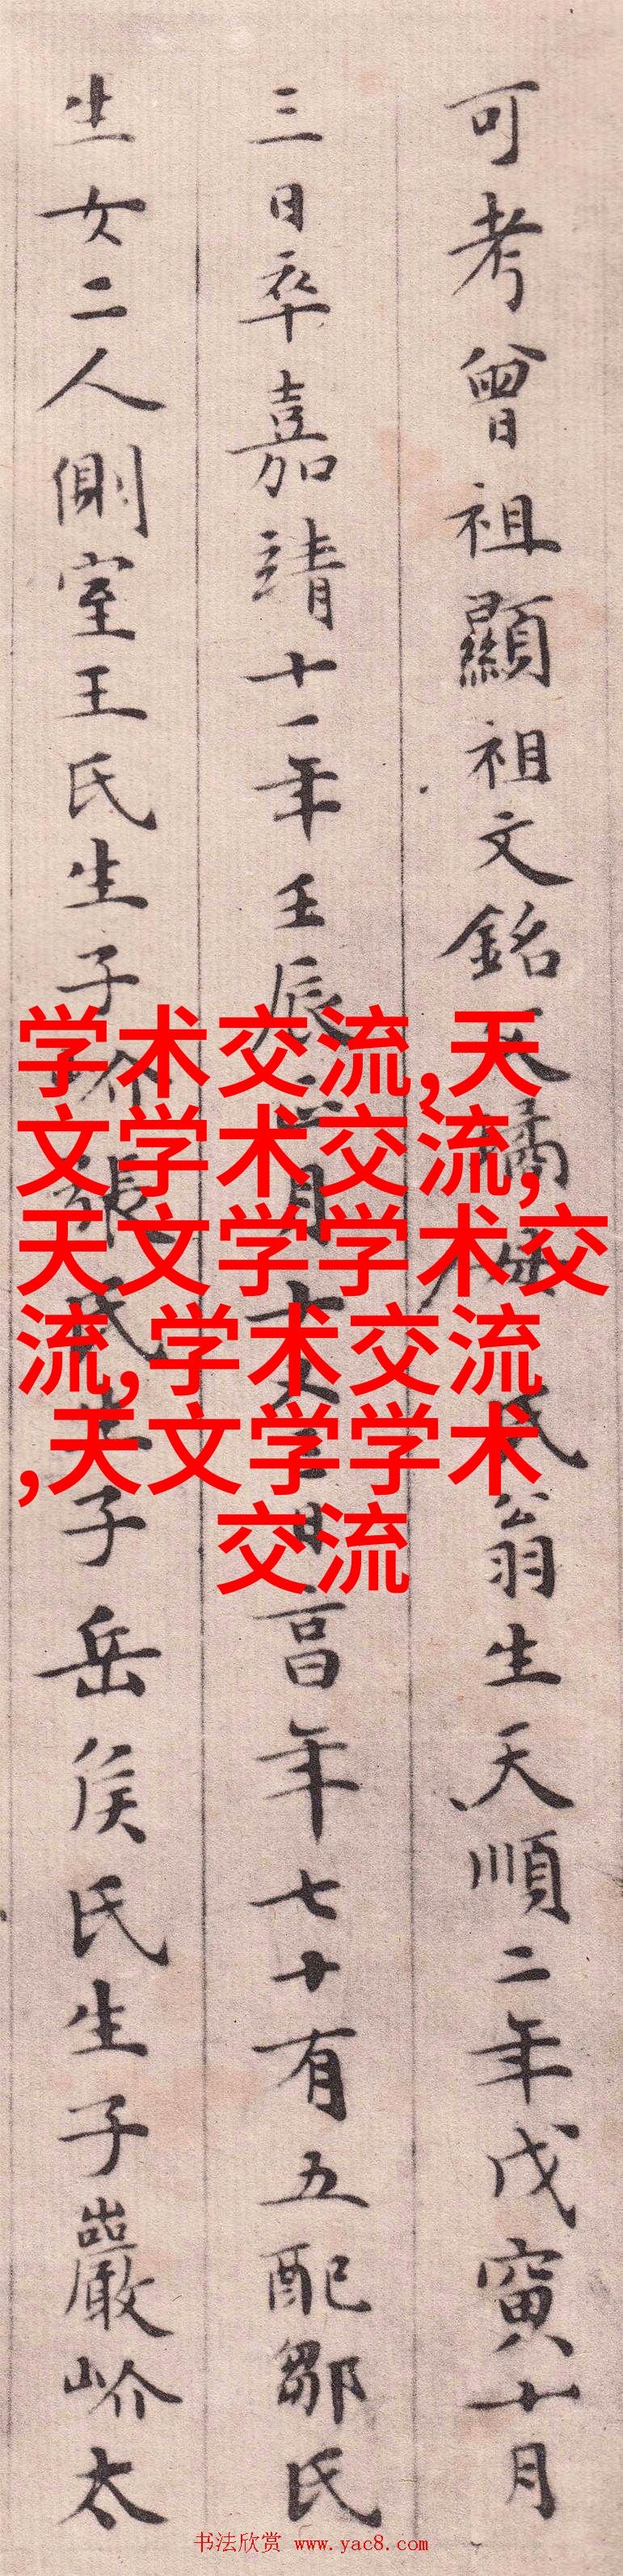 可考曾祖顯祖文銘氏翁生天順二年戊寅十月
三日卒嘉靖十一年壬辰月日享年七十有五配鄒氏
生女二人側室王氏生子岕張氏生子岳侯氏生子巖岕太
学术交流,天
文学术交流,
天文学学术交
流,学术交流
,天文学学术
交流
书法欣赏 www.yac8.com